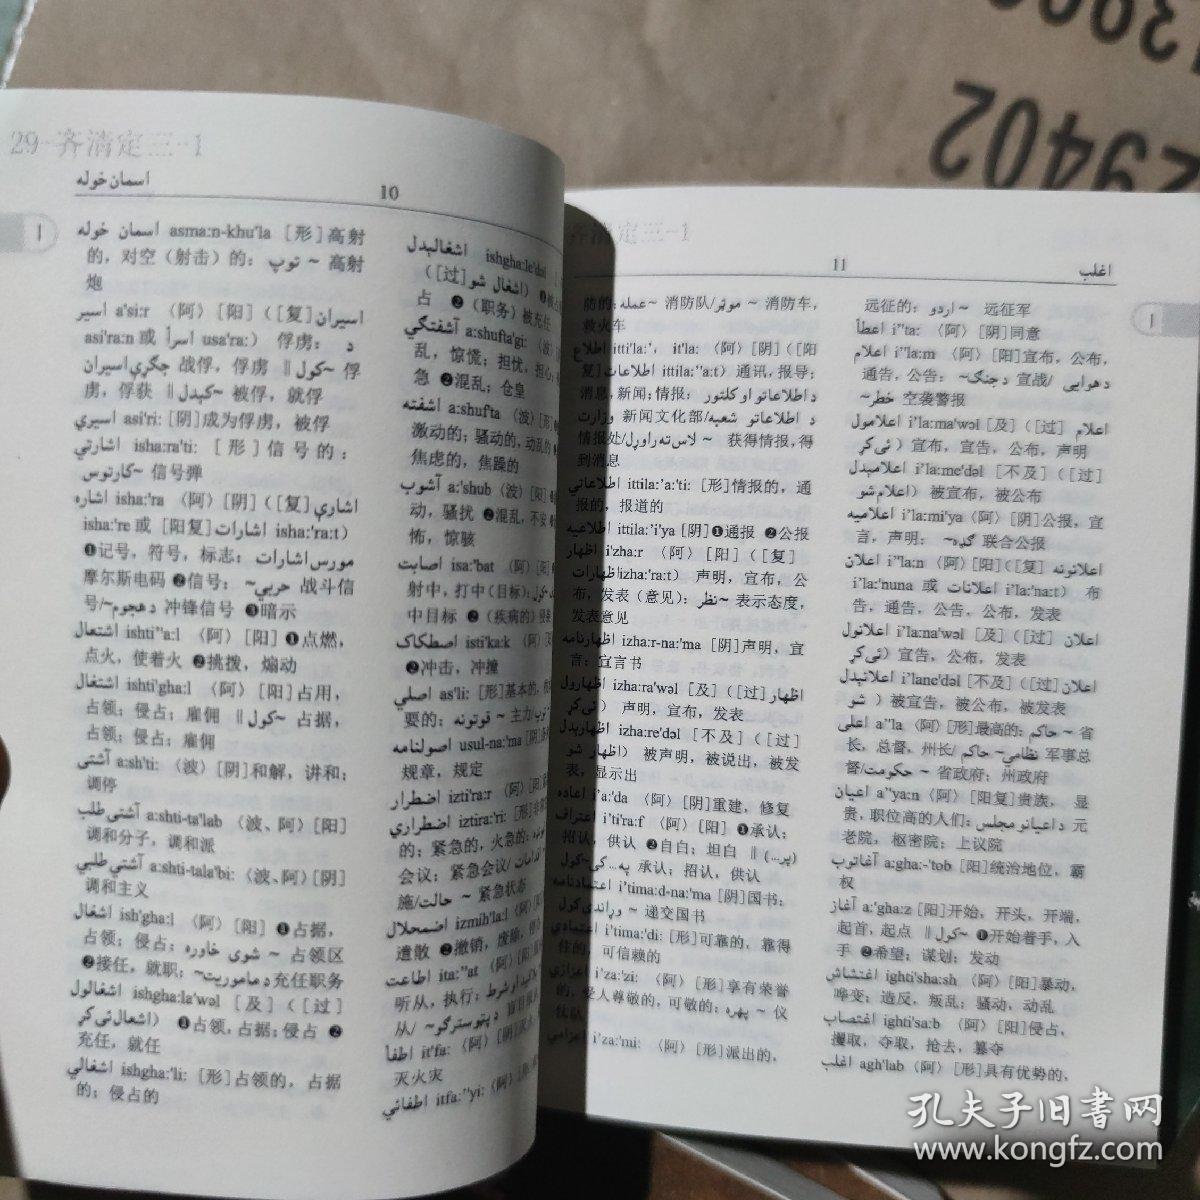 29402
29-齐清定三-1
اسمان خوله
10
ا
اسمان خوله asma:n-khu'la [形]高射
的，对空（射击）的：توپ ~ 高射
炮
اسير a'si:r 〈阿〉[阳]（[复]اسيران
asi'ra:n 或 اسرأ usa'ra:） 俘虏： د
جگړې اسيران 战俘，俘虏 ‖ ~کول 俘
虏，俘获 ‖ ~کېدل 被俘，就俘
اسيري asi'ri: [阴]成为俘虏，被俘
اشارتي isha:ra'ti: [形]信号的：
~کارتوس 信号弹
اشاره isha:'ra 〈阿〉[阴]（[复]اشارې
isha:'re 或 [阳复] اشارات isha:'ra:t）
❶记号，符号，标志：مورس اشارات
摩尔斯电码 ❷信号： ~حربي 战斗信
号/~د هجوم 冲锋信号 ❸暗示
اشتعال ishti''a:l 〈阿〉[阳] ❶点燃，
点火，使着火 ❷挑拨，煽动
اشتغال ishti'gha:l 〈阿〉[阳]占用，
占领；侵占；雇佣 ‖ ~کول 占据，
占领；侵占；雇佣
آشتي a:sh'ti: 〈波〉[阴]和解，讲和；
调停
آشتي طلب a:shti-ta'lab 〈波、阿〉[阳]
调和分子，调和派
آشتي طلبي a:shti-tala'bi: 〈波、阿〉[阴]
调和主义
اشغال ish'gha:l 〈阿〉[阳] ❶占据，
占领；侵占：شوي خاوره ~ 占领区
❷接任，就职：~د ماموريت 充任职务
اشغالول ishgha:la'wəl [及]（[过]
اشغال ئې کړ） ❶占领，占据；侵占 ❷
充任，就任
اشغالي ishgha:'li: [形]占领的，占据
的；侵占的
اشغالېدل ishgha:le'dəl
（[过]اشغال شو） ❶
占 ❷（职务）被充任
آشفتګي a:shufta'gi: 〈波〉
乱，惊慌；担忧，担心；
急 ❷混乱；仓皇
آشفته a:shuf'ta 〈波〉[形]
激动的；骚动的，动乱的
焦虑的，焦躁的
آشوب a:'shub 〈波〉[阳]
动，骚扰 ❷混乱，不安
怖，惊骇
اصابت isa:'bat 〈阿〉
射中，打中（目标）：
中目标 ❷（疾病的）侵
اصطکاک isti'ka:k 〈阿〉
❷冲击，冲撞
اصلي as'li: [形]基本的，
要的：قوتونه ~ 主力/
اصولنامه usul-na:'ma [阴]
规章，规定
اضطرار izti'ra:r 〈阿〉
اضطراري iztira:'ri: [形]
的；紧急的，火急的：
会议；紧急会议/
施/حالت ~ 紧急状态
اضمحلال izmih'la:l 〈阿〉
遭败 ❷撤销，废除，
اطاعت ita:''at 〈阿〉
听从，执行：
从/
اطفأ it'fa: 〈阿〉
灭火灾
اطفائي itfa:''yi: 〈阿〉
齐清定三-1
11
اغلب
ا
防的：عمله ~ 消防队/موټر ~ 消防车，
救火车
اطلاع itti'la:', it'la: 〈阿〉[阴]（[阳
复]اطلاعات ittila:''a:t）通讯，报导；
消息，新闻；情报：د اطلاعاتو او کلتور
وزارت 新闻文化部/د اطلاعاتو شعبه
情报处/لاس ته راوړل ~ 获得情报，得
到消息
اطلاعاتي ittila:'a:'ti: [形]情报的，通
报的，报道的
اطلاعيه ittila:'i'ya [阴]❶通报 ❷公报
اظهار i'zha:r 〈阿〉[阳]（[复]
اظهارات izha:'ra:t） 声明，宣布，公
布，发表（意见）：~نظر 表示态度，
发表意见
اظهارنامه izha:r-na:'ma [阴]声明，宣
言；宣言书
اظهارول izha:ra'wəl [及]（[过]اظهار
ئې کړ） 声明，宣布，发表
اظهارېدل izha:re'dəl [不及]（[过]
اظهار شو） 被声明，被说出，被发
表，显示出
اعاده i'a:'da 〈阿〉[阴]重建，修复
اعتراف i'ti'ra:f 〈阿〉[阳] ❶承认；
招认，供认 ❷自白；坦白 ‖ (پر...)
په... کې~کول 承认；招认，供认
اعتمادنامه i'tima:d-na:'ma [阴]国书：
وړاندې کول ~ 递交国书
اعتمادي i'tima:'di: [形]可靠的，靠得
住的，可信赖的
اعزازي i'za:'zi: 〈阿〉[形]享有荣誉
的，受人尊敬的，可敬的：پهره ~ 仪
仗队
اعزامي i'za:'mi: 〈阿〉[形]派出的，
远征的：اردو ~ 远征军
اعطأ i''ta: 〈阿〉[阴]同意
اعلام i''la:m 〈阿〉[阳]宣布，公布，
通告，公告：~د جنګ 宣战/د هوايي
~خطر 空袭警报
اعلامول i'la:ma'wəl [及]（[过] اعلام
ئې کړ）宣布，宣告，公布，声明
اعلامېدل i'la:me'dəl [不及]（[过]
اعلام شو） 被宣布，被公布
اعلاميه i'la:mi'ya 〈阿〉[阴]公报，宣
言，声明： ~ ګډه 联合公报
اعلان i''la:n 〈阿〉[阳]（[复]اعلانونه
i'la:'nuna 或 اعلانات i'la:'na:t） 布
告，通告，公告，公布，发表
اعلانول i'la:na'wəl [及]（[过] اعلان
ئې کړ）宣告，公布，发表
اعلانېدل i'lane'dəl [不及]（[过]اعلان
شو ）被宣告，被公布，被发表
اعلی a''la 〈阿〉[形]最高的：حاکم ~ 省
长，总督，州长/نظامي~ حاکم 军事总
督/حکومت ~ 省政府；州政府
اعيان a''ya:n 〈阿〉[阳复]贵族， 显
贵，职位高的人们：د اعيانو مجلس 元
老院，枢密院；上议院
آغاتوب a:gha:-'tob [阳]统治地位，霸
权
آغاز a:'gha:z [阳]开始，开头，开端，
起首，起点 ‖ ~کول ❶开始着手，入
手 ❷希望；谋划；发动
اغتشاش ighti'sha:sh 〈阿〉[阳]暴动，
哗变；造反，叛乱；骚动，动乱
اغتصاب ighti'sa:b 〈阿〉[阳]侵占，
攫取，夺取，抢去，篡夺
اغلب agh'lab 〈阿〉[形]具有优势的，
孔夫子旧书网
www.kongfz.com